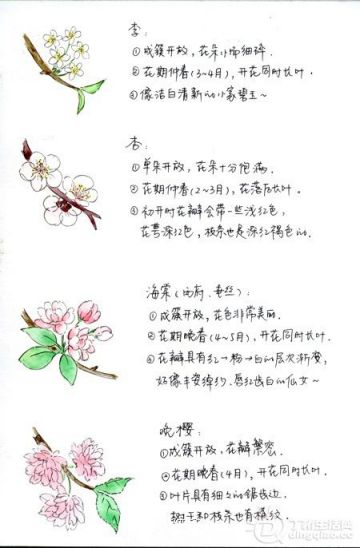 李:
①成簇开放，花朵小而细碎.
②花期仲春(3~4月)，开花同时长叶.
③像洁白清新的小家碧玉~
杏:
①单朵开放，花朵十分饱满.
②花期仲春(2~3月)，花落后长叶.
③初开时花瓣会带一些浅红色，
花萼深红色，枝条也是深红褐色的.
海棠(西府.垂丝):
①成簇开放，花色非常美丽.
②花期晚春(4~5月)，开花同时长叶.
③花瓣具有红→粉→白的层次渐变，
好像丰姿绰约.唇红齿白的仙女~
晚樱:
①成簇开放，花瓣繁密.
②花期晚春(4月)，开花同时长叶.
③叶片具有细细的锯齿边.
树干和枝条也有横纹.
丁优生活网
dingqiao.cc